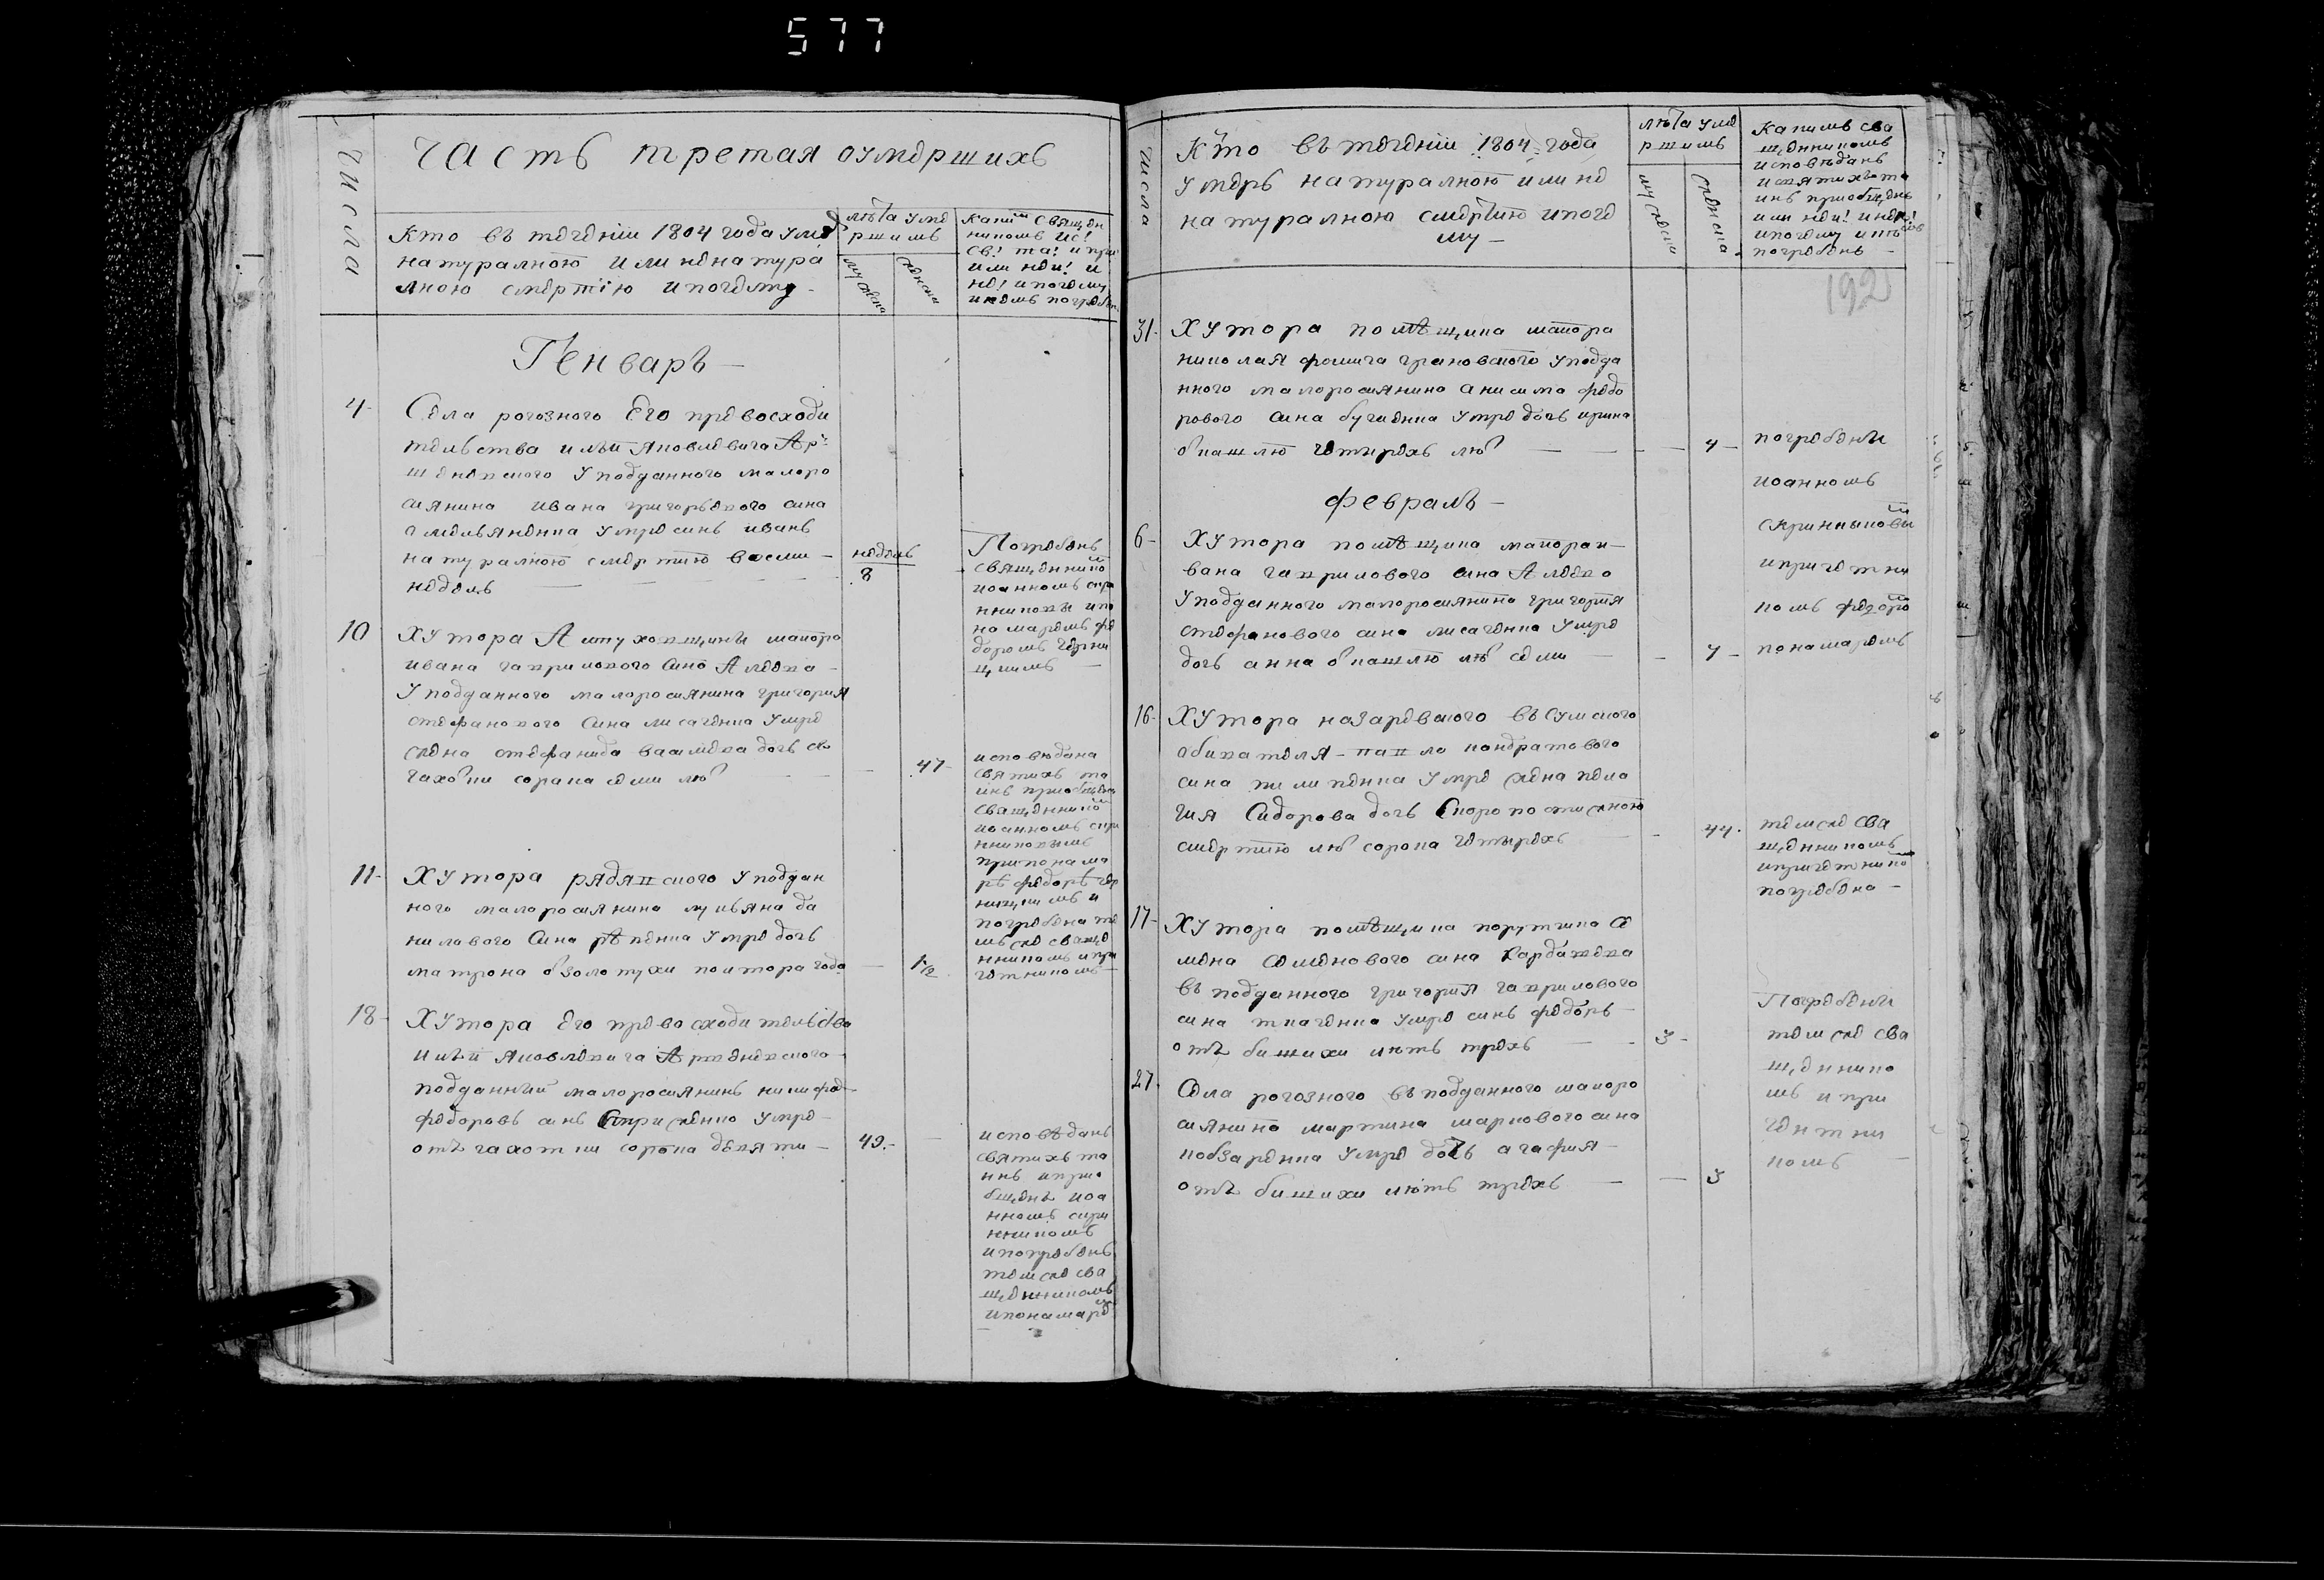 577
Числа
Часть третая оумершихъ
Кто въ теченіи 1804 года умре
натуралною или не натура
лною смертію и почему
лѣта уме
ршимъ
мужеска
женска
Каким священ
никомъ ис!
св! та! и при
или неи! и
не! и почему
и кемъ погребен
Генваръ
4
Села рогозного Его превосходи
телства илѣи Яковлевича
подданного малоро
сиянина ивана григорьевого сина
Умре синъ иванъ
натуралною смертию восми
недель
неделъ
8
Погребенъ
священнико
иоанномъ скри
нниковы и по
номаремъ фе
доромъ
10
Хутора маиора
ивана гаврилового сина
У подданного малоросиянина григория
стефанового сина лисаченка Умре
жена стефанида василева дочь
чахотки сорока семи лет
47
исповедана
святихъ та
инъ приобщена
священнико
иоанномъ скри
нниковымъ
при понома
рѣ федорѣ
и
погребена те
мъ же свяще
нникомъ и при
четникомъ
11
Хутора У поддан
ного малоросиянина лукьяна да
нилового Сина Умре дочь
матрона золотухи полтора года
1 1/2
18
Хутора Его превосходителства
илѣи Яковлевича
подданний малоросиянинъ никифор
федоровъ синъ Умре
отъ чахотки сорока девяти
49
исповѣданъ
святихъ та
инъ и прио
бщенъ иоа
нномъ скри
нникомъ
и погребенъ
темъ же свя
щенникомъ
и пономаре
Числа
Кто въ теченіи 1804 года
умеръ натуралною или не
натуралною смертию и поче
му
лѣта уме
ршимъ
мужеска
женска
Какимъ свя
щенникомъ
исповѣданъ
и святихъ та
инъ приобщенъ
или неи! и не!
и почему и кемъ
погребенъ
192
31
Хутора помѣщика маиора
николая фомича грановского У подда
нного малоросиянина анисима федо
рового сина Умре дочь ирина
кашлю четирехъ лет
4
погребени
иоанномъ
скринниковы
и причетни
комъ федоро
пономаремъ
февралъ
6
Хутора помѣщика маиора и
вана гаврилового сина
У подданного малоросиянина григория
стефанового сина лисаченка Умре
дочь анна кашлю лет семи
7
16
Хутора назаревского въ сумского
обивателя павла кондратового
сина пилипенка Умре жена пела
гия Сидорова дочь Скоропостижною
смертию лет сорока четирехъ
44
темже свя
щенникомъ
и причетнико
погребена
17
Хутора помѣщика порутчика се
мена семенового сина
въ подданного григория гаврилового
сина ткаченка Умре синъ федоръ
отъ бишихи летъ трехъ
3
Погребени
темже свя
щеннико
мъ и при
четни
комъ
27
Села рогозного въ подданного малоро
сиянина мартина маркового сина
кобзаренка Умре дочь агафия
отъ бишихи летъ трехъ
3